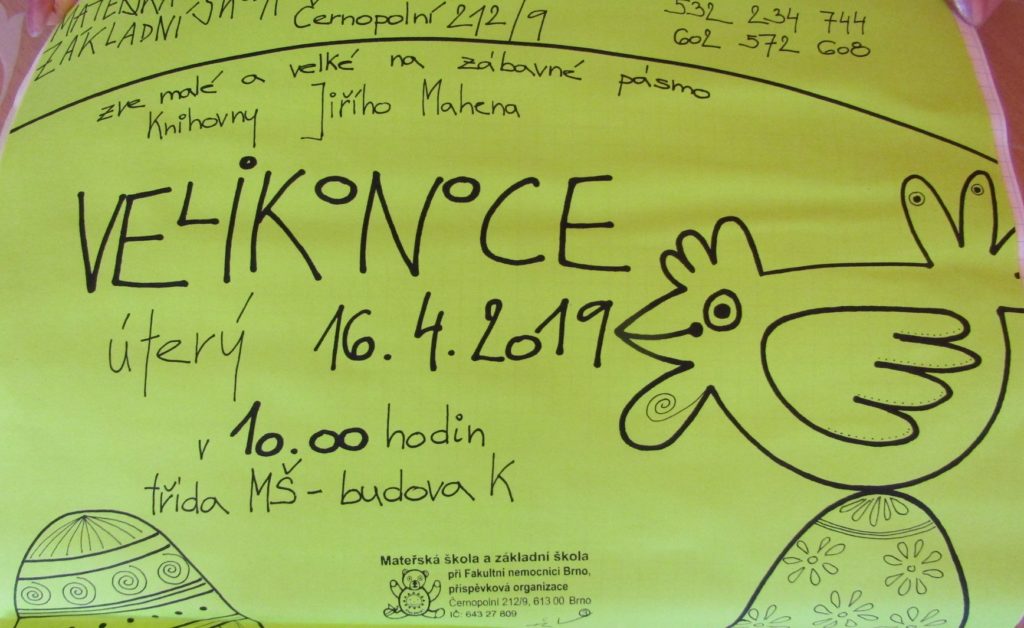 MATEŘSKÁ ŠKOLA
ZÁKLADNÍ
Černopolní 212/9
532 234 744
602 572 608
zve malé a velké na zábavné pásmo
Knihovny Jiřího Mahena
VELIKONOCE
úterý 16.4.2019
v 10.00 hodin
třída MŠ - budova K
Mateřská škola a základní škola
při Fakultní nemocnici Brno,
příspěvková organizace
Černopolní 212/9, 613 00 Brno
IČ: 643 27 809